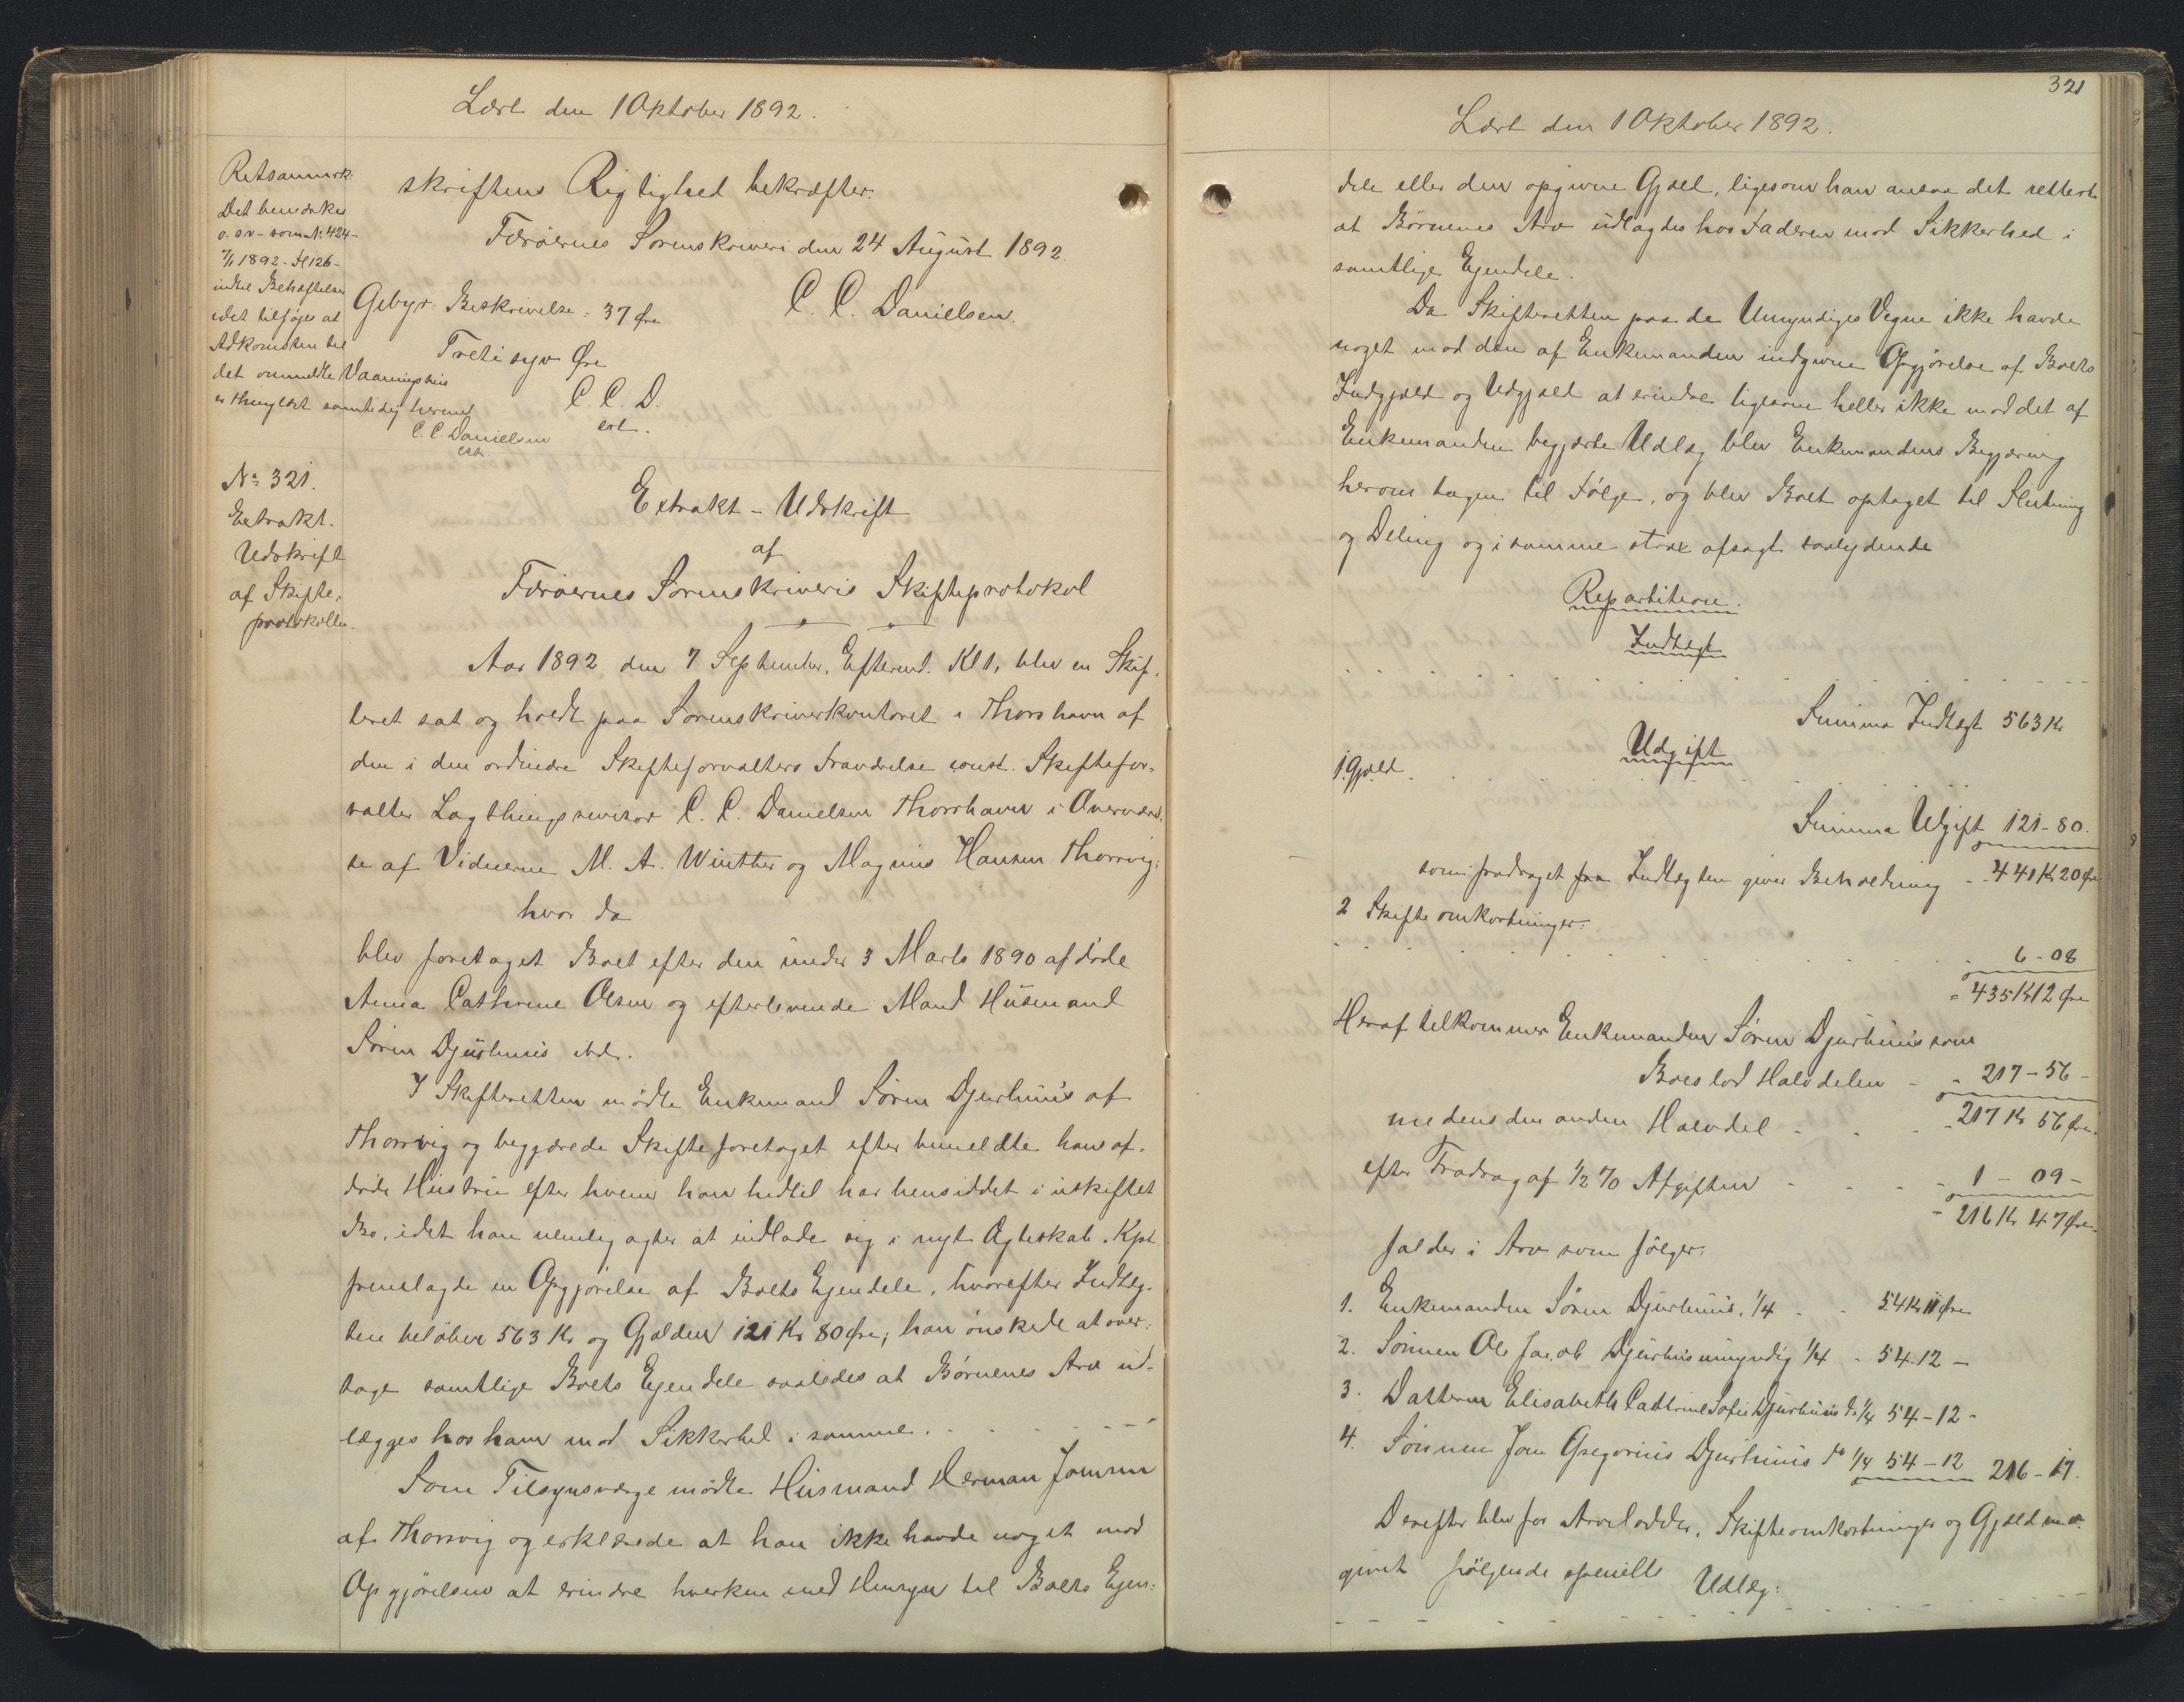 Læst den 1 Oktober 1892.
Retsanmærk:
Det bemærkes
o.s.v. som No 424
1892 - Fl 126 -
indtil Behæftelse
idet tilføjes at
Adkomsten til
det ommeldte Vaaningshus
er thinglæst samtidig hermed
C. C. Danielsen
cst.
skriftens Rigtighed bekræfter.
Færøernes Sorenskriveri den 24 August 1892.
C. C. Danielsen.
Gebyr: Beskrivelse: 37 Øre
Treti syv Øre
C. C. D.
cst.
No 321.
Extrakt.
Udskrift
af Skifte-
protokollen.
Extrakt - Udskrift
af
Færøernes Sorenskriveris Skifteprotokol
Aar 1892 den 7 September, Eftermd. Kl 1, blev en Skif-
teret sat og holdt paa Sorenskriverkontoret i Thorshavn af
den i den ordinære Skifteforvalters Fraværelse const. Skiftefor-
valter Lagthingsrevisor C. C. Danielsen Thorshavn i Overværel-
se af Vidnerne M. A. Winther og Magnus Hansen Thorsvig:
hvor da
blev foretaget Boet efter den under 3 Marts 1890 afdøde
Anna Cathrine Olsen og efterlevende Mand Husmand
Søren Djurhuus ibdr.
I Skifteretten mødte Enkemand Søren Djurhuus af
Thorsvig og begjærede Skifte foretaget efter bemeldte hans af-
døde Hustru efter hvem han hidtil har hensiddet i uskiftet
Bo, idet han nemlig agter at indlade sig i nyt Ægteskab. Kpt.
fremlagde en Opgjørelse af Boets Ejendele, hvorefter Indtæg-
ten beløber 563 Kr og Gjælden 121 Kr 80 Øre; han ønskede at over-
tage samtlige Boets Ejendele saaledes at Børnenes Arv ud-
lægges hos ham mod Sikkerhed i samme. - - - - -
Som Tilsynsværge mødte Husmand Herman Joensen
af Thorsvig og erklærede at han ikke havde noget mod
Opgjørelsen at erindre hverken med Hensyn til Boets Ejen-
321
Læst den 1 Oktober 1892.
dele eller den opgivne Gjæld, ligesom han ansaa det rettest
at Børnenes Arv udlagdes hos Faderen mod Sikkerhed i
samtlige Ejendele.
Da Skifteretten paa de Umyndiges Vegne ikke havde
noget mod den af Enkemanden indgivne Opgjørelse af Boets
Indgjæld og Udgjæld at erindre ligesom heller ikke mod det af
Enkemanden begjærte Udlæg blev Enkemandens Begjæring
herom tagen til Følge, og blev Boet optaget til Slutning
og Deling og i samme strax afsagt saalydende
Repartition:
Indtægt
Summa Indtægt 563 Kr
Udgift
1. Gjæld.
Summa Udgift 121 - 80.
som fradraget fra Indtægten giver Beholdning - 441 Kr 20 Øre
2 Skifteomkostninger.
6 - 08
- 435 Kr 12 Øre
Heraf tilkommer Enkemanden Søren Djurhuus som
Boeslod Halvdelen - - 217 - 56 -
medens den anden Halvdel - - - 217 Kr 56 Øre.
efter Fradrag af 1/2 % Afgiften - - - 1 - 09 -
- 216 Kr 47 Øre.
falder i Arv som følger:
1. Enkemanden Søren Djurhuus, 1/4 - - 54 Kr 11 Øre
2. Sønnen Ole Jacob Djurhuus umyndig 1/4 - 54 - 12 -
3. Datteren Elisabeth Cathrine Sofie Djurhuus do 1/4 54 - 12 -
4. Sønnen Joen Gregorius Djurhuus do 1/4 54 - 12 216 - 47.
Derefter blev for Arvelodder, Skifteomkostninger og Gjæld m.v.
givet følgende specielle Udlæg: